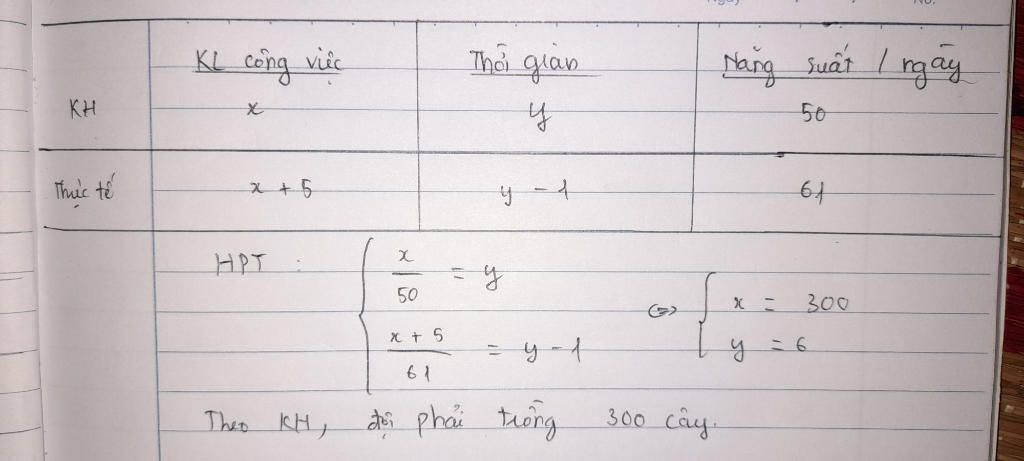 Ngày No.
KL công việc Thời gian Năng suất / ngày
KH x y 50
Thực tế x + 5 y - 1 61
HPT : { x/50 = y
(x + 5)/61 = y - 1
⇔ { x = 300
y = 6
Theo KH, đội phải trồng 300 cây.